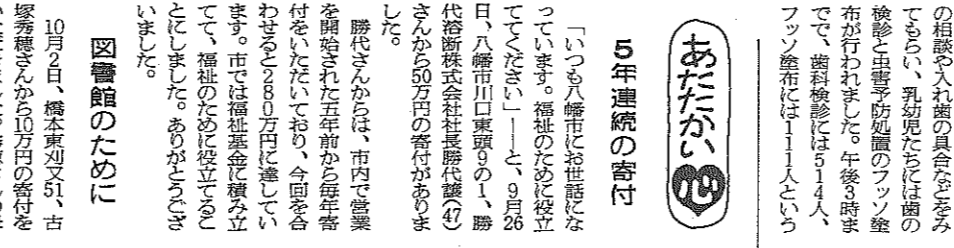 の相談や入れ歯の具合などをみ
てもらい、乳幼児たちには歯の
検診と虫害予防処置のフッソ塗
布が行われました。午後3時ま
でで、歯科検診には514人、
フッソ塗布には111人という
あたたかい心
5年連続の寄付
「いつも八幡市にお世話にな
っています。福祉のために役立
ててください」——と、9月26
日、八幡市川口東頭9の1、勝
代溶断株式会社社長勝代譲(47)
さんから50万円の寄付がありま
した。
勝代さんからは、市内で営業
を開始された五年前から毎年寄
付をいただいており、今回を合
わせると280万円に達してい
ます。市では福祉基金に積み立
てて、福祉のために役立てるこ
とにしました。ありがとうござ
いました。
図書館のために
10月2日、橋本東刈又51、古
塚秀穂さんから10万円の寄付を